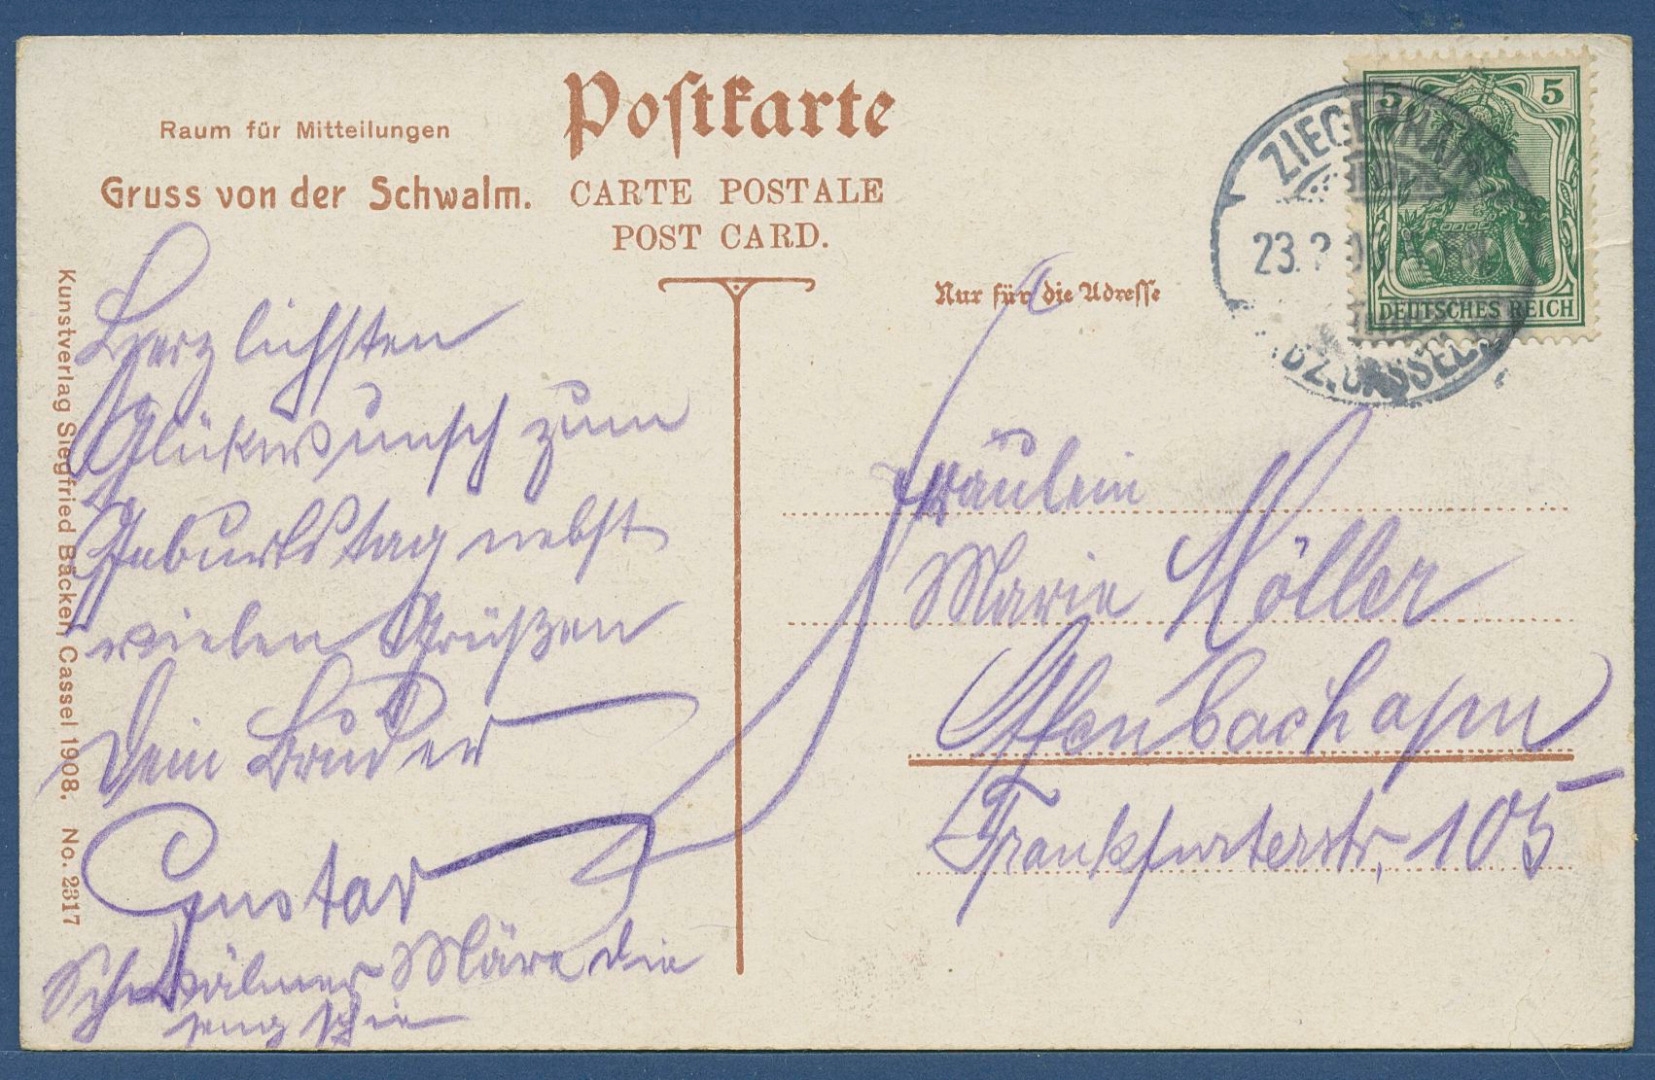 Raum für Mitteilungen
Gruss von der Schwalm.
Postkarte
CARTE POSTALE
POST CARD.
Nur für die Adresse
Kunstverlag Siegfried Bäcker, Cassel 1908. No. 2317
5 5
DEUTSCHES REICH
ZIEGENHAIN
23.
BZ. CASSEL
Herzlichsten
Glückwunsch zum
Geburtstag nebst
vielen Grüßen
Dein Bruder
Gustav
Schwälmer die
Fräulein
Marie Möller
Offenbach a/m
Frankfurterstr. 105